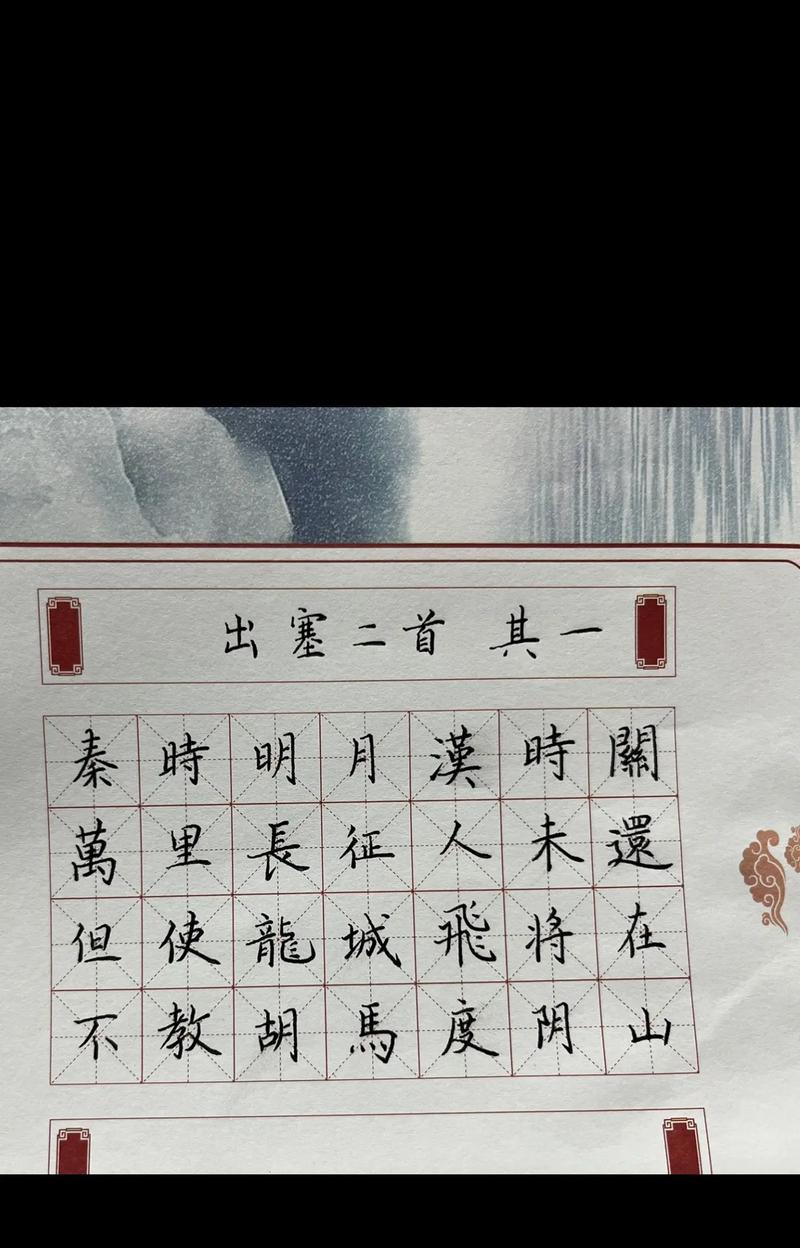 出塞二首 其一
秦時明月漢時關
萬里長征人未還
但使龍城飛将在
不教胡馬度阴山